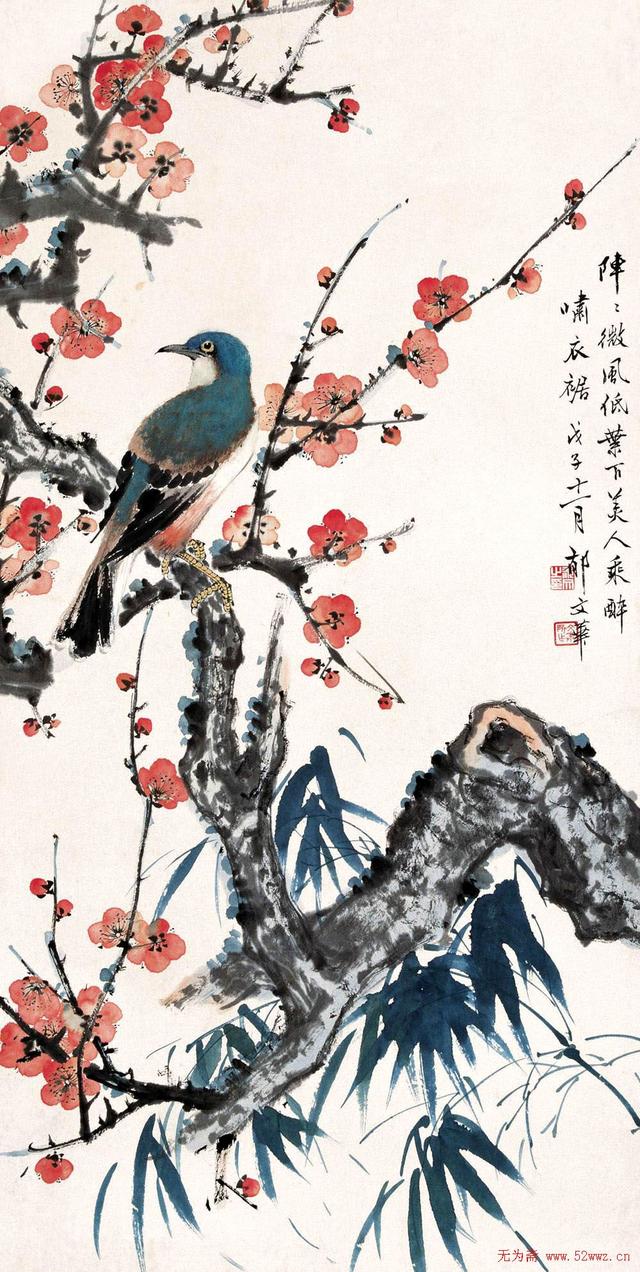 陣〻微風低葉下美人乘醉
嘯衣裾戊子十一月郁文華
无为斋 www.52wwz.cn